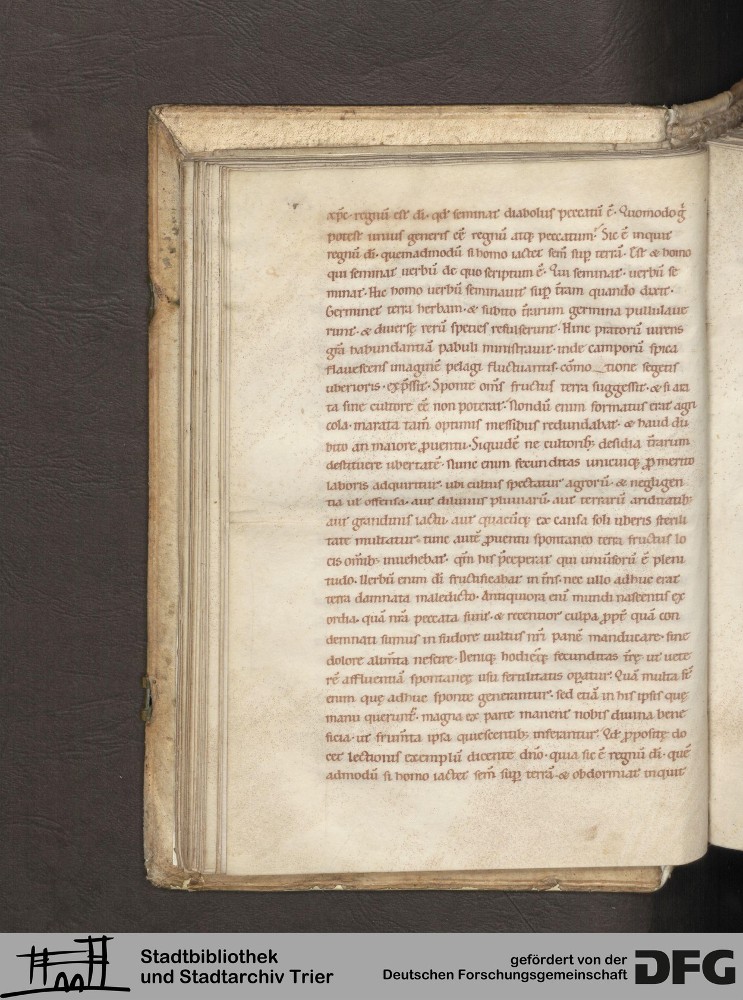 xp̄c · regnū est dī · qd̄ seminat diabolus peccatū ē · Quomodo g̊
potest unius generis eē regnū atq; peccatum? Sic ē inquit
regnū dī · quemadmodū si homo iactet sem̄ sup̄ terrā · Est & homo
qui seminat uerbū de quo scriptum ē · Qui seminat · uerbū se
minat · Hic homo uerbū seminauit sup̄ t̄ram quando dixit ·
Germinet terra herbam · & subito t̄rarum germina pullulaue
runt · & diuersę rerū species refulserunt · Hinc pratorū uirens
gr̄a habundantiā pabuli ministrauit · inde camporū spica
flauescens imaginē pelagi fluctuantis · cōmo_tione segetis
uberioris · exp̄ssit · Sponte om̄s fructus terra suggessit · & si ara
ta sine cultore eē non poterat · Nondū enim formatus erat agri
cola · inarata tam̄ optimis messibus redundabat · & haud du
bito an maiore ꝓuentu · Siquidē ne cultorib; desidia t̄rarum
destituere ubertatē · Nunc enim fecunditas unicuiq; ꝓ merito
laboris adquiritur · ubi cultus spectatur agrorū · & negligen
tia ut offensa · aut diluuiis pluuiarū · aut terrarū ariditatib;
aut grandinis iactu · aut quacūq; ex causa soli uberis sterili
tate multatur · tunc autē ꝓuentu spontaneo terra fructus lo
cis om̄ib; inuehebat · qm̄ his p̄ceperat qui uniūsorū ē pleni
tudo · Uerbū enim dī fructificabat in t̄ris · nec ullo adhuc erat
terra damnata maledicto · Antiquiora eni᷒ mundi nascentis ex
ordia · quā nr̄a peccata sunt · & recentior culpa ꝓpt̄ quā con
demnati sumus in sudore uultus nr̄i panē manducare · sine
dolore alim̄ta nescire · Deniq; hodieq; fecunditas t̄rę ut uete
rē affluentiā spontaneę usu fertilitatis oꝑatur · Quā multa st̄
enim quę adhuc sponte generantur · sed etiā in his ipsis quę
manu querunt̄ · magna ex parte manent nobis diuina bene
ficia · ut frum̄ta ipsa quiescentib; inserantur · Qd̄ ꝓpositę do
cet lectionis exemplū dicente dn̄o · quia sic ē regnū dī · quē
admodū si homo iactet sem̄ sup̄ terrā & obdormiat inquit
Stadtbibliothek
und Stadtarchiv Trier
gefördert von der
Deutschen Forschungsgemeinschaft
DFG